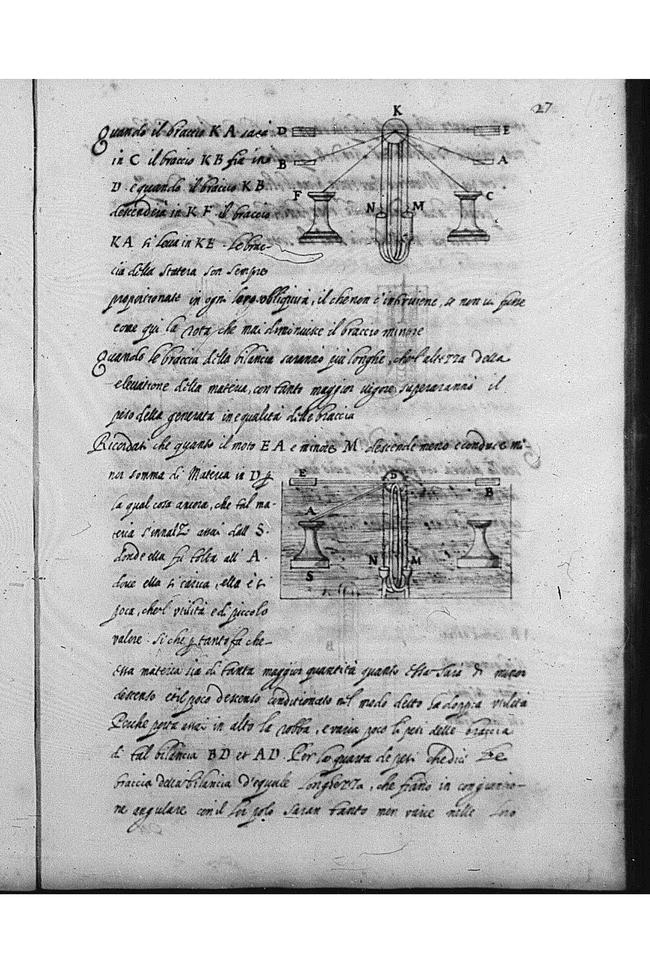 27
K
Quando il braccio KA sarà D E
in C il braccio KB fia in B A
D e quando il braccio KB F C
descenderà in KF il braccio N M
KA si leva in KE. le brac-
cia della statera son sempre
proporzionate in ogni loro obliquità, il che non è
come qui la rota che mai diminuisce il braccio minore
Quando le braccia della bilancia saranno più longhe, che l'altezza della
elevatione della materia, con tanto maggior vigore superaranno il
peso della generata inequalità delle braccia
Ricordati che quanto il moto EA e minore M descende meno e conduce mi-
nor somma di Materia in D p E D B
la qual cosa ancora, che tal ma- A
teria s'innalz assai dall S.
donde ella fu tolta all' A. N M
dove ella si carca, ella è sì S
poca, che l' utilità e di piccolo
valore. si che p tanto fa che
essa materia sia di tanta maggior quantità quanto essa sarà di minor
descenso et il poco descenso conditionato nel modo detto fa doppia utilità
Perche porta assai in alto la robba, e varia poco li pesi delle braccia
di tal bilancia BD et AD. Per la quarta de pesi che dice Le
braccia della bilancia d'equale longhezza, che siano in congiuntio-
ne angulare con il lor polo saran tanto men varie nelle loro